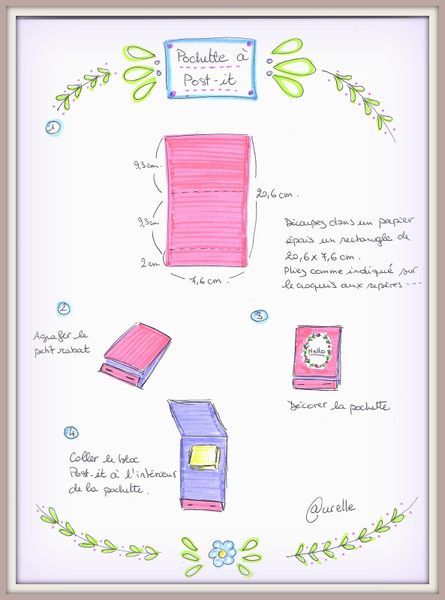 Pochette à
Post-it
1
9,3 cm
9,3 cm
2 cm
20,6 cm.
7,6 cm.
Découpez dans un papier
épais un rectangle de
20,6 x 7,6 cm.
Pliez comme indiqué sur
le croquis aux repères ---
2
Agrafer le
petit rabat
3
Hello
Décorer la pochette
4
Coller le bloc
Post-it à l'intérieur
de la pochette.
@urelle